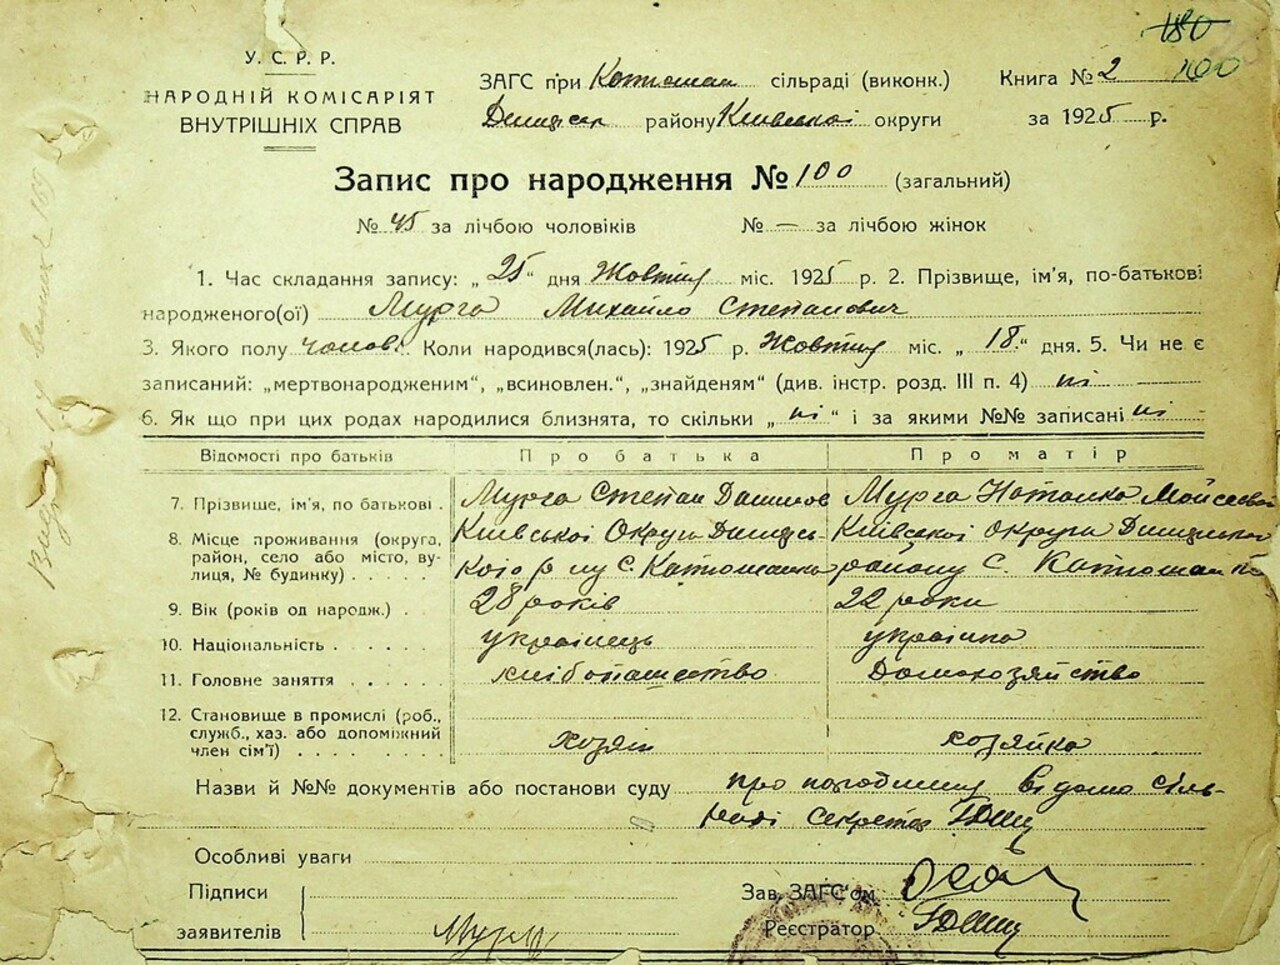 180
У. С. Р. Р.
ЗАГС при Катюжан сільраді (виконк.) Книга № 2 100
НАРОДНІЙ КОМІСАРІЯТ
ВНУТРІШНІХ СПРАВ
Димерск району Київської округи за 1925 р.
Запис про народження № 100 (загальний)
№ 45 за лічбою чоловіків № — за лічбою жінок
1. Час складання запису: „25“ дня Жовтня міс. 1925 р. 2. Прізвище, ім'я, по-батькові
народженого(ої) Мурга Михайло Степанович
3. Якого полу чолов. Коли народився(лась): 1925 р. Жовтня міс. „18“ дня. 5. Чи не є
записаний: „мертвонародженим“, „всиновлен.“, „знайденям“ (див. інстр. розд. III п. 4) ні
6. Як що при цих родах народилися близнята, то скільки „ні“ і за якими №№ записані ні
Відомості про батьків Про батька Про матір
7. Прізвище, ім'я, по батькові . Мурга Степан Мурга Наталка Мойсеевна
8. Місце проживання (округа, Київської Округи Димерсь- Київської округи Димерського
район, село або місто, ву-
лиця, № будинку) . . . . . кого р-ну С. Катюжанка району С. Катюжанка
9. Вік (років од народж.) . 28 років 22 роки
10. Національність . . . . . . українець українка
11. Головне заняття . . . . . хлібопашество Домохозяйство
12. Становище в промислі (роб.,
служб., хаз. або допоміжний
член сім'ї) . . . . . . . . хозяін хозяйка
Назви й №№ документів або постанови суду про відомо сіль-
ради секретар
Особливі уваги
Підписи Зав. ЗАГС'ом
заявителів Мурга Реєстратор